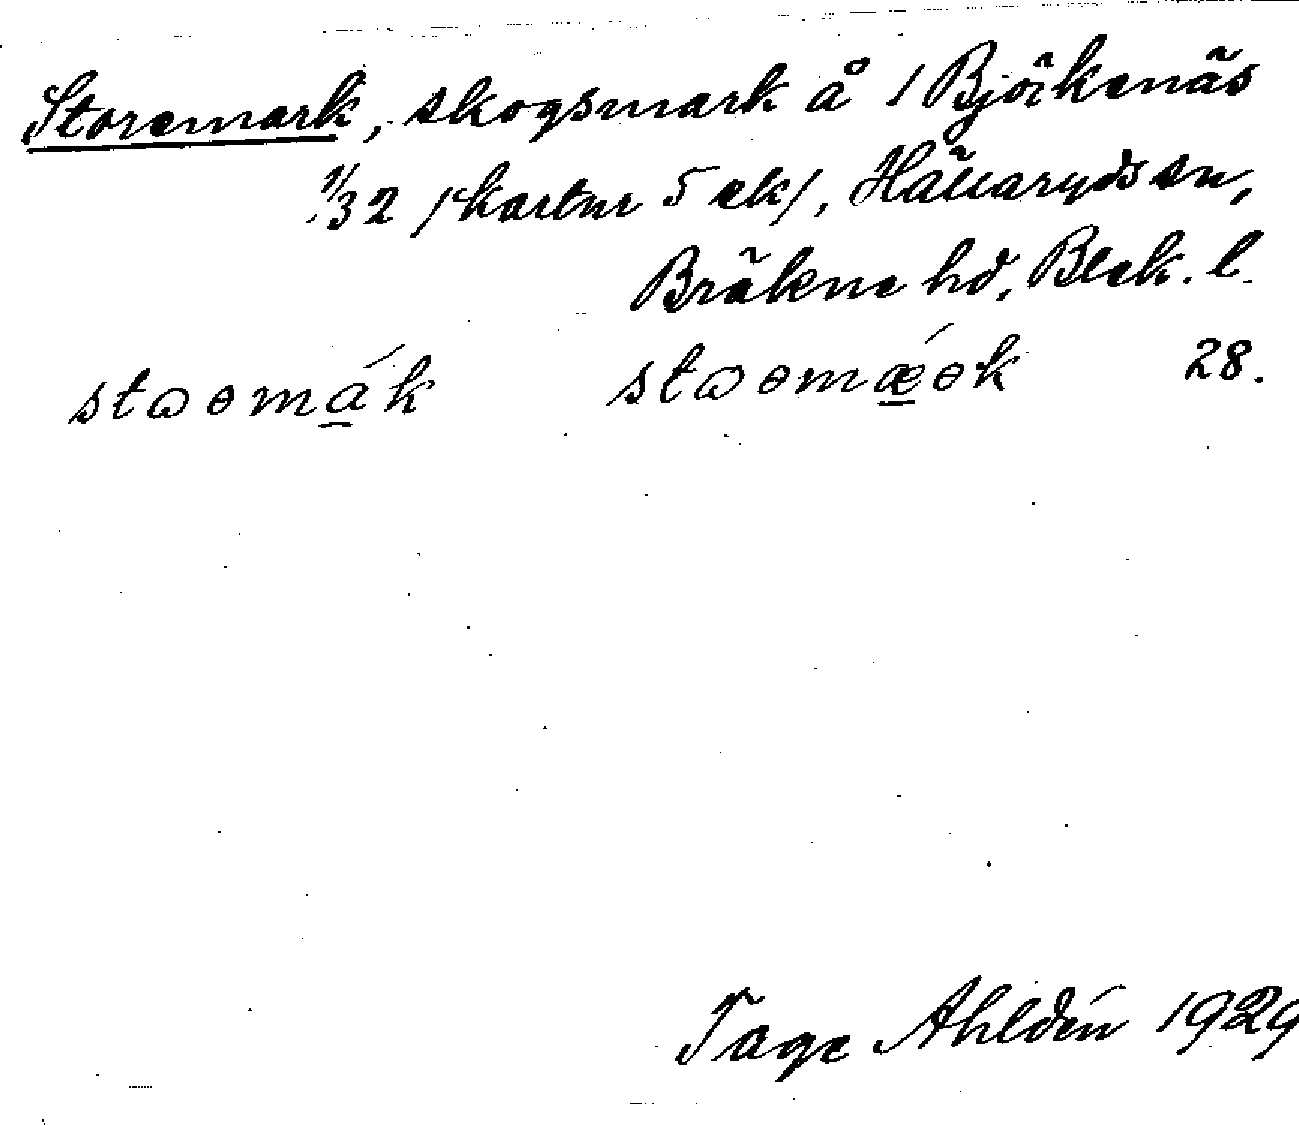 Storemark, skogsmark å 1 Björkenäs
1/32 /kartnr 5 ek/, Hällaryds sn,
Bräkne hd, Blek. l.
stɷɵmák stɷɵmǽɵk 28.
Tage Ahldén 1929